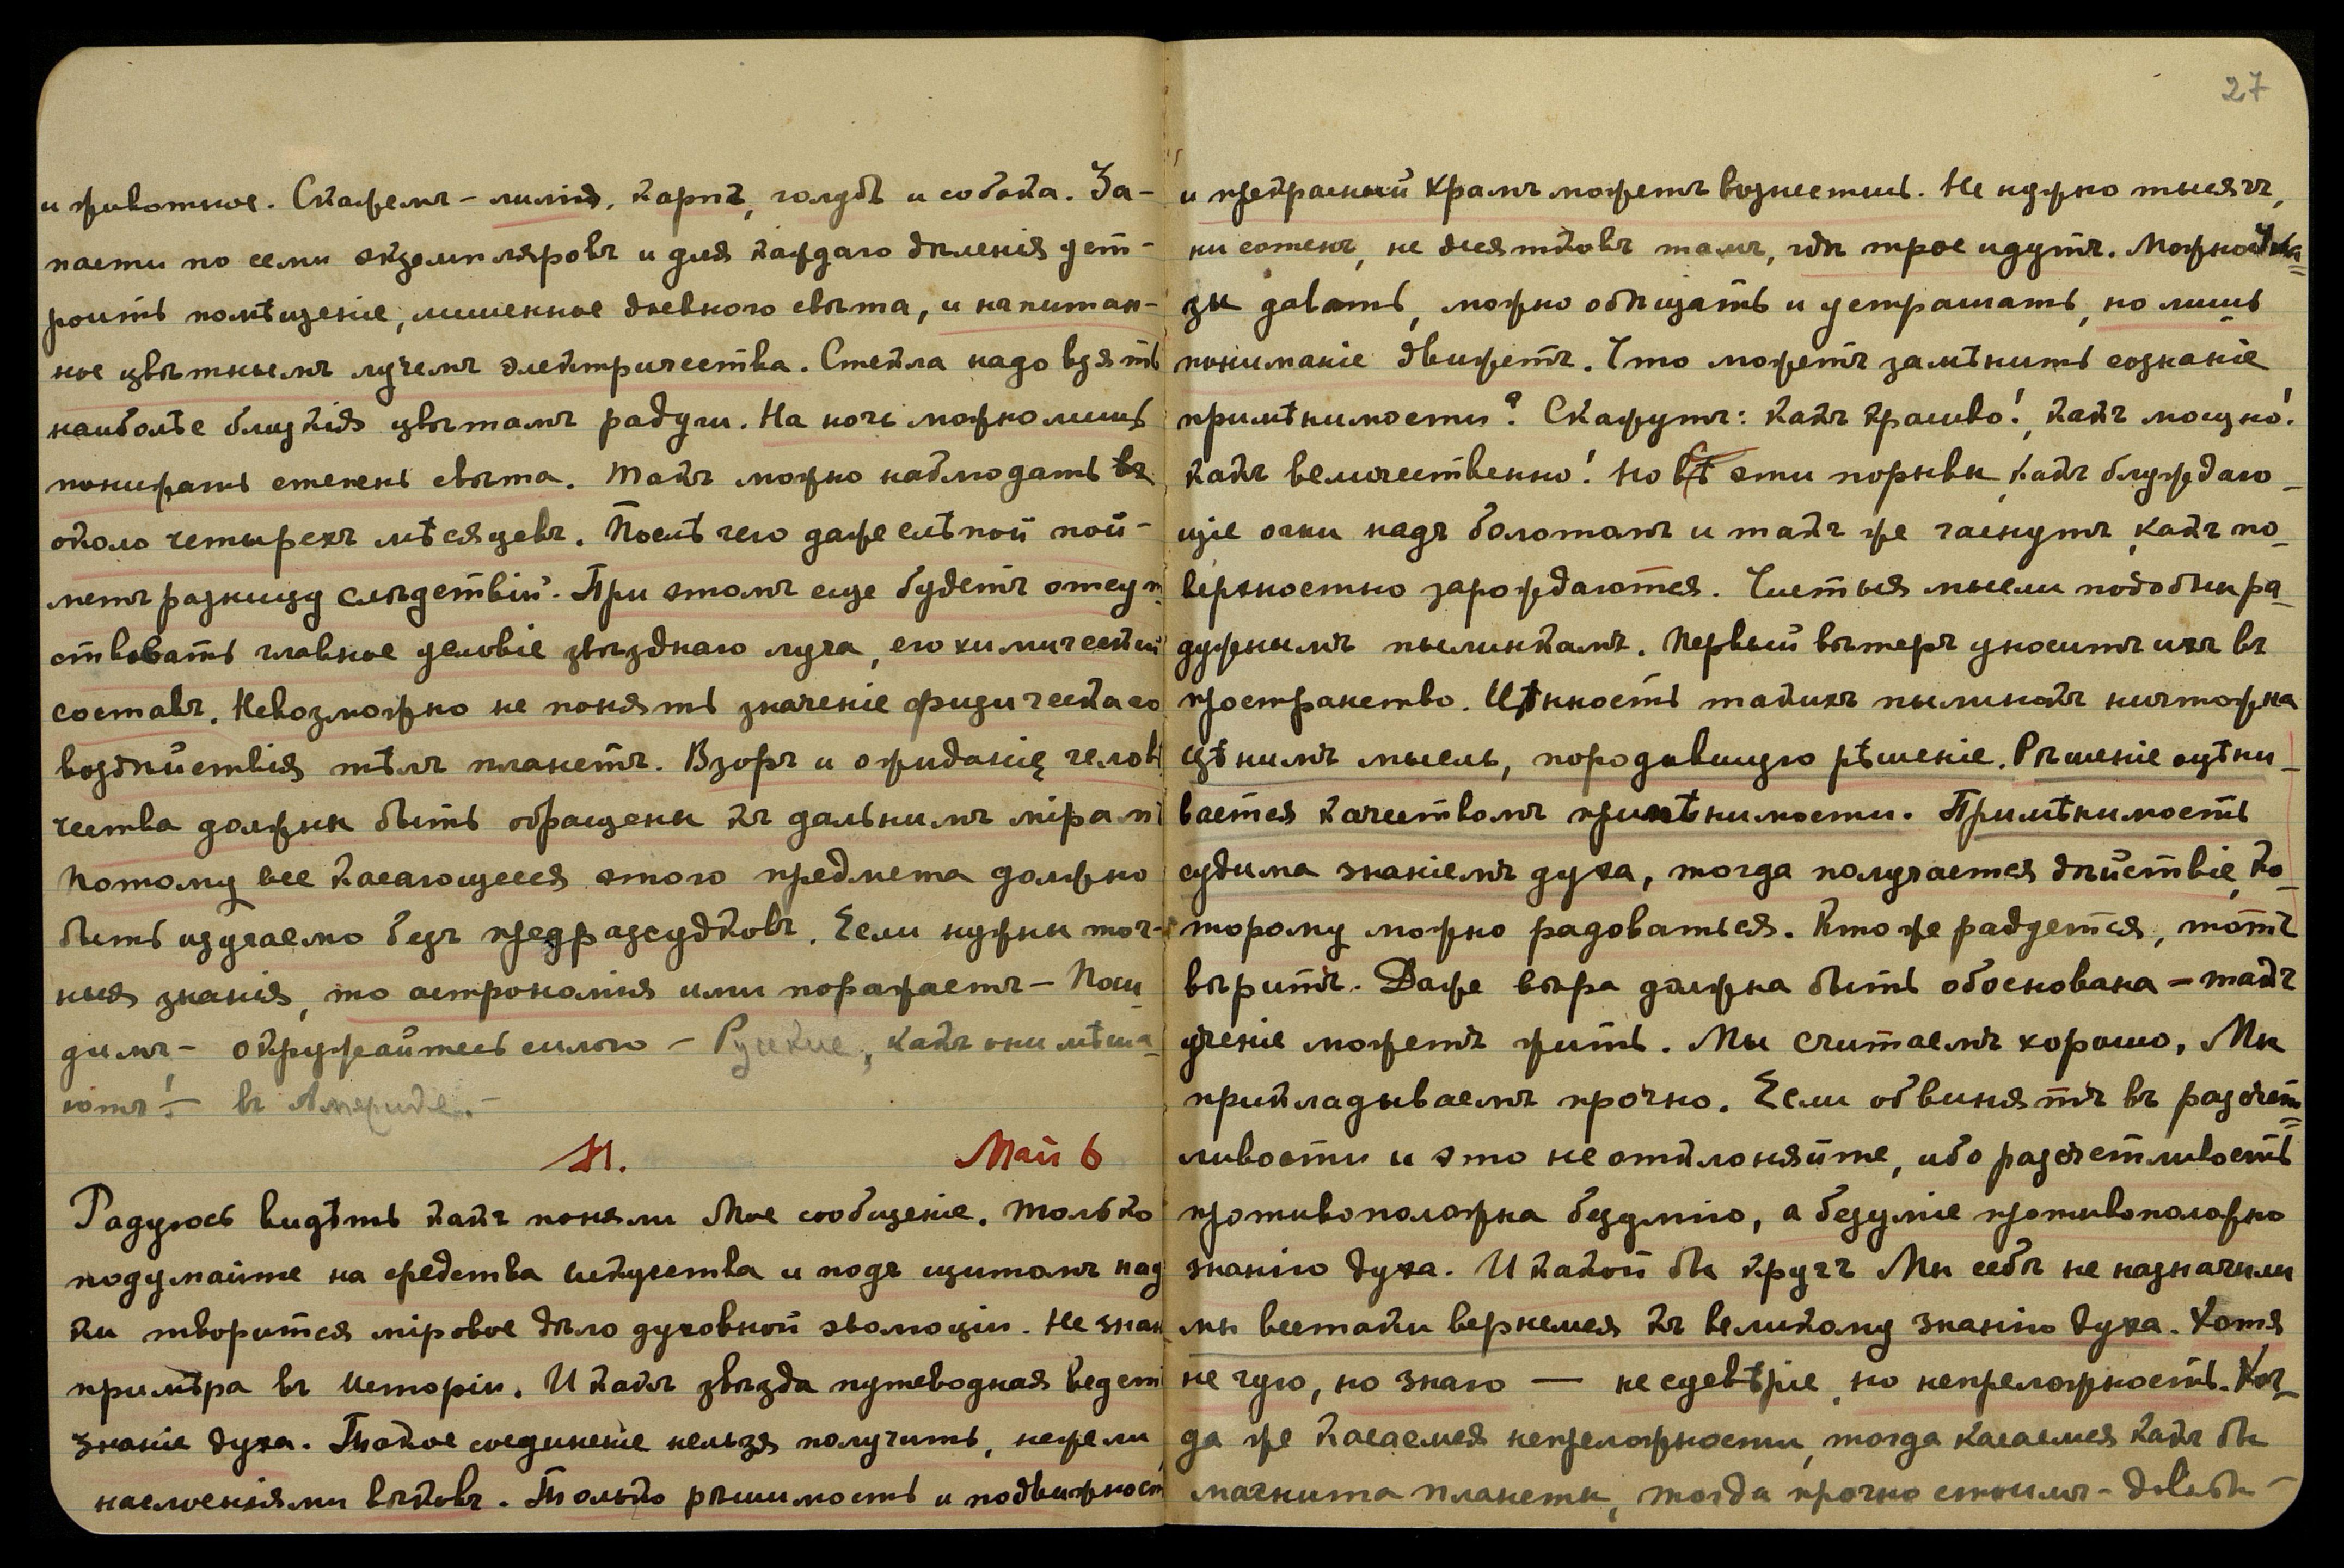 27
и животное. Скажемъ – лилія, карпъ, голубь и собака. За-
пасти по семи экземпляровъ и для каждаго дѣленія уст-
роить помѣщеніе, лишенное дневного свѣта, и напитан-
ное цвѣтнымъ лучемъ электричества. Стекла надо взять
наиболѣе близкія цвѣтамъ радуги. На ночь можно лишь
понижать степень свѣта. Такъ можно наблюдать въ
около четырехъ мѣсяцевъ. Послѣ чего даже слѣпой пой-
метъ разницу слѣдствій. При этомъ еще будетъ отсут-
ствовать главное условіе звѣзднаго луча, его химическій
составъ. Невозможно не понять значеніе физическаго
воздѣйствія тѣлъ планетъ. Взоръ и ожиданіе челов
чества должны быть обращены къ дальнимъ мірамъ
Потому все касающееся этого предмета должно
быть изучаемо безъ предразсудковъ. Если нужны точ-
ныя знанія, то астрономія ими поражаетъ – Поси
димъ – окружайтесь силою – Русскіе, какъ они мѣша-
ютъ! – въ Америкѣ. –
М. Май 6
Радуюсь видѣть какъ поняли Мое сообщеніе. Только
подумайте на средства искусства и подъ щитомъ нау
ки творится міровое дѣло духовной эволюціи. Не знаю
примѣра въ Исторіи. И какъ звѣзда путеводная ведетъ
знаніе духа. Такое соединеніе нельзя получить, нежели
наслоеніями вѣковъ. Только рѣшимость и подвижност
и прекрасный Храмъ можетъ вознестись. Не нужно тысячъ,
ни сотенъ, не десятковъ тамъ, гдѣ трое идутъ. Можно Ука-
зы давать, можно обѣщать и устрашать, но лишь
пониманіе движетъ. Что можетъ замѣнить сознаніе
примѣнимости? Скажутъ: какъ красиво!, какъ мощно!
какъ величественно! Но всѣ эти порывы, какъ блуждаю-
щіе огни надъ болотомъ и такъ же гаснутъ, какъ по-
верхностно зарождаются. Чистыя мысли подобны ра-
дужнымъ пылинкамъ. Первый вѣтеръ уноситъ ихъ въ
пространство. Цѣнность такихъ пылинокъ ничтожна
цѣнимъ мысль, породившую рѣшеніе. Рѣшеніе оцѣни-
вается качествомъ примѣнимости. Примѣнимость
судима знаніемъ духа, тогда получается дѣйствіе, ко-
торому можно радоваться. Кто же радуется, тотъ
вѣритъ. Даже вѣра должна быть обоснована – такъ
ученіе можетъ жить. Мы считаемъ хорошо, Мы
прикладываемъ прочно. Если обвинятъ въ разсчет-
ливости и это не отклоняйте, ибо разсчетливость
противоположна безумію, а безуміе противоположно
знанію духа. И какой бы кругъ Мы себѣ не назначили
мы всетаки вернемся къ великому знанію духа. Хотя
не чую, но знаю — не суевѣріе, но непреложность. Ког-
да же касаемся непреложности, тогда касаемся какъ бы
магнита планеты, тогда прочно стоимъ –